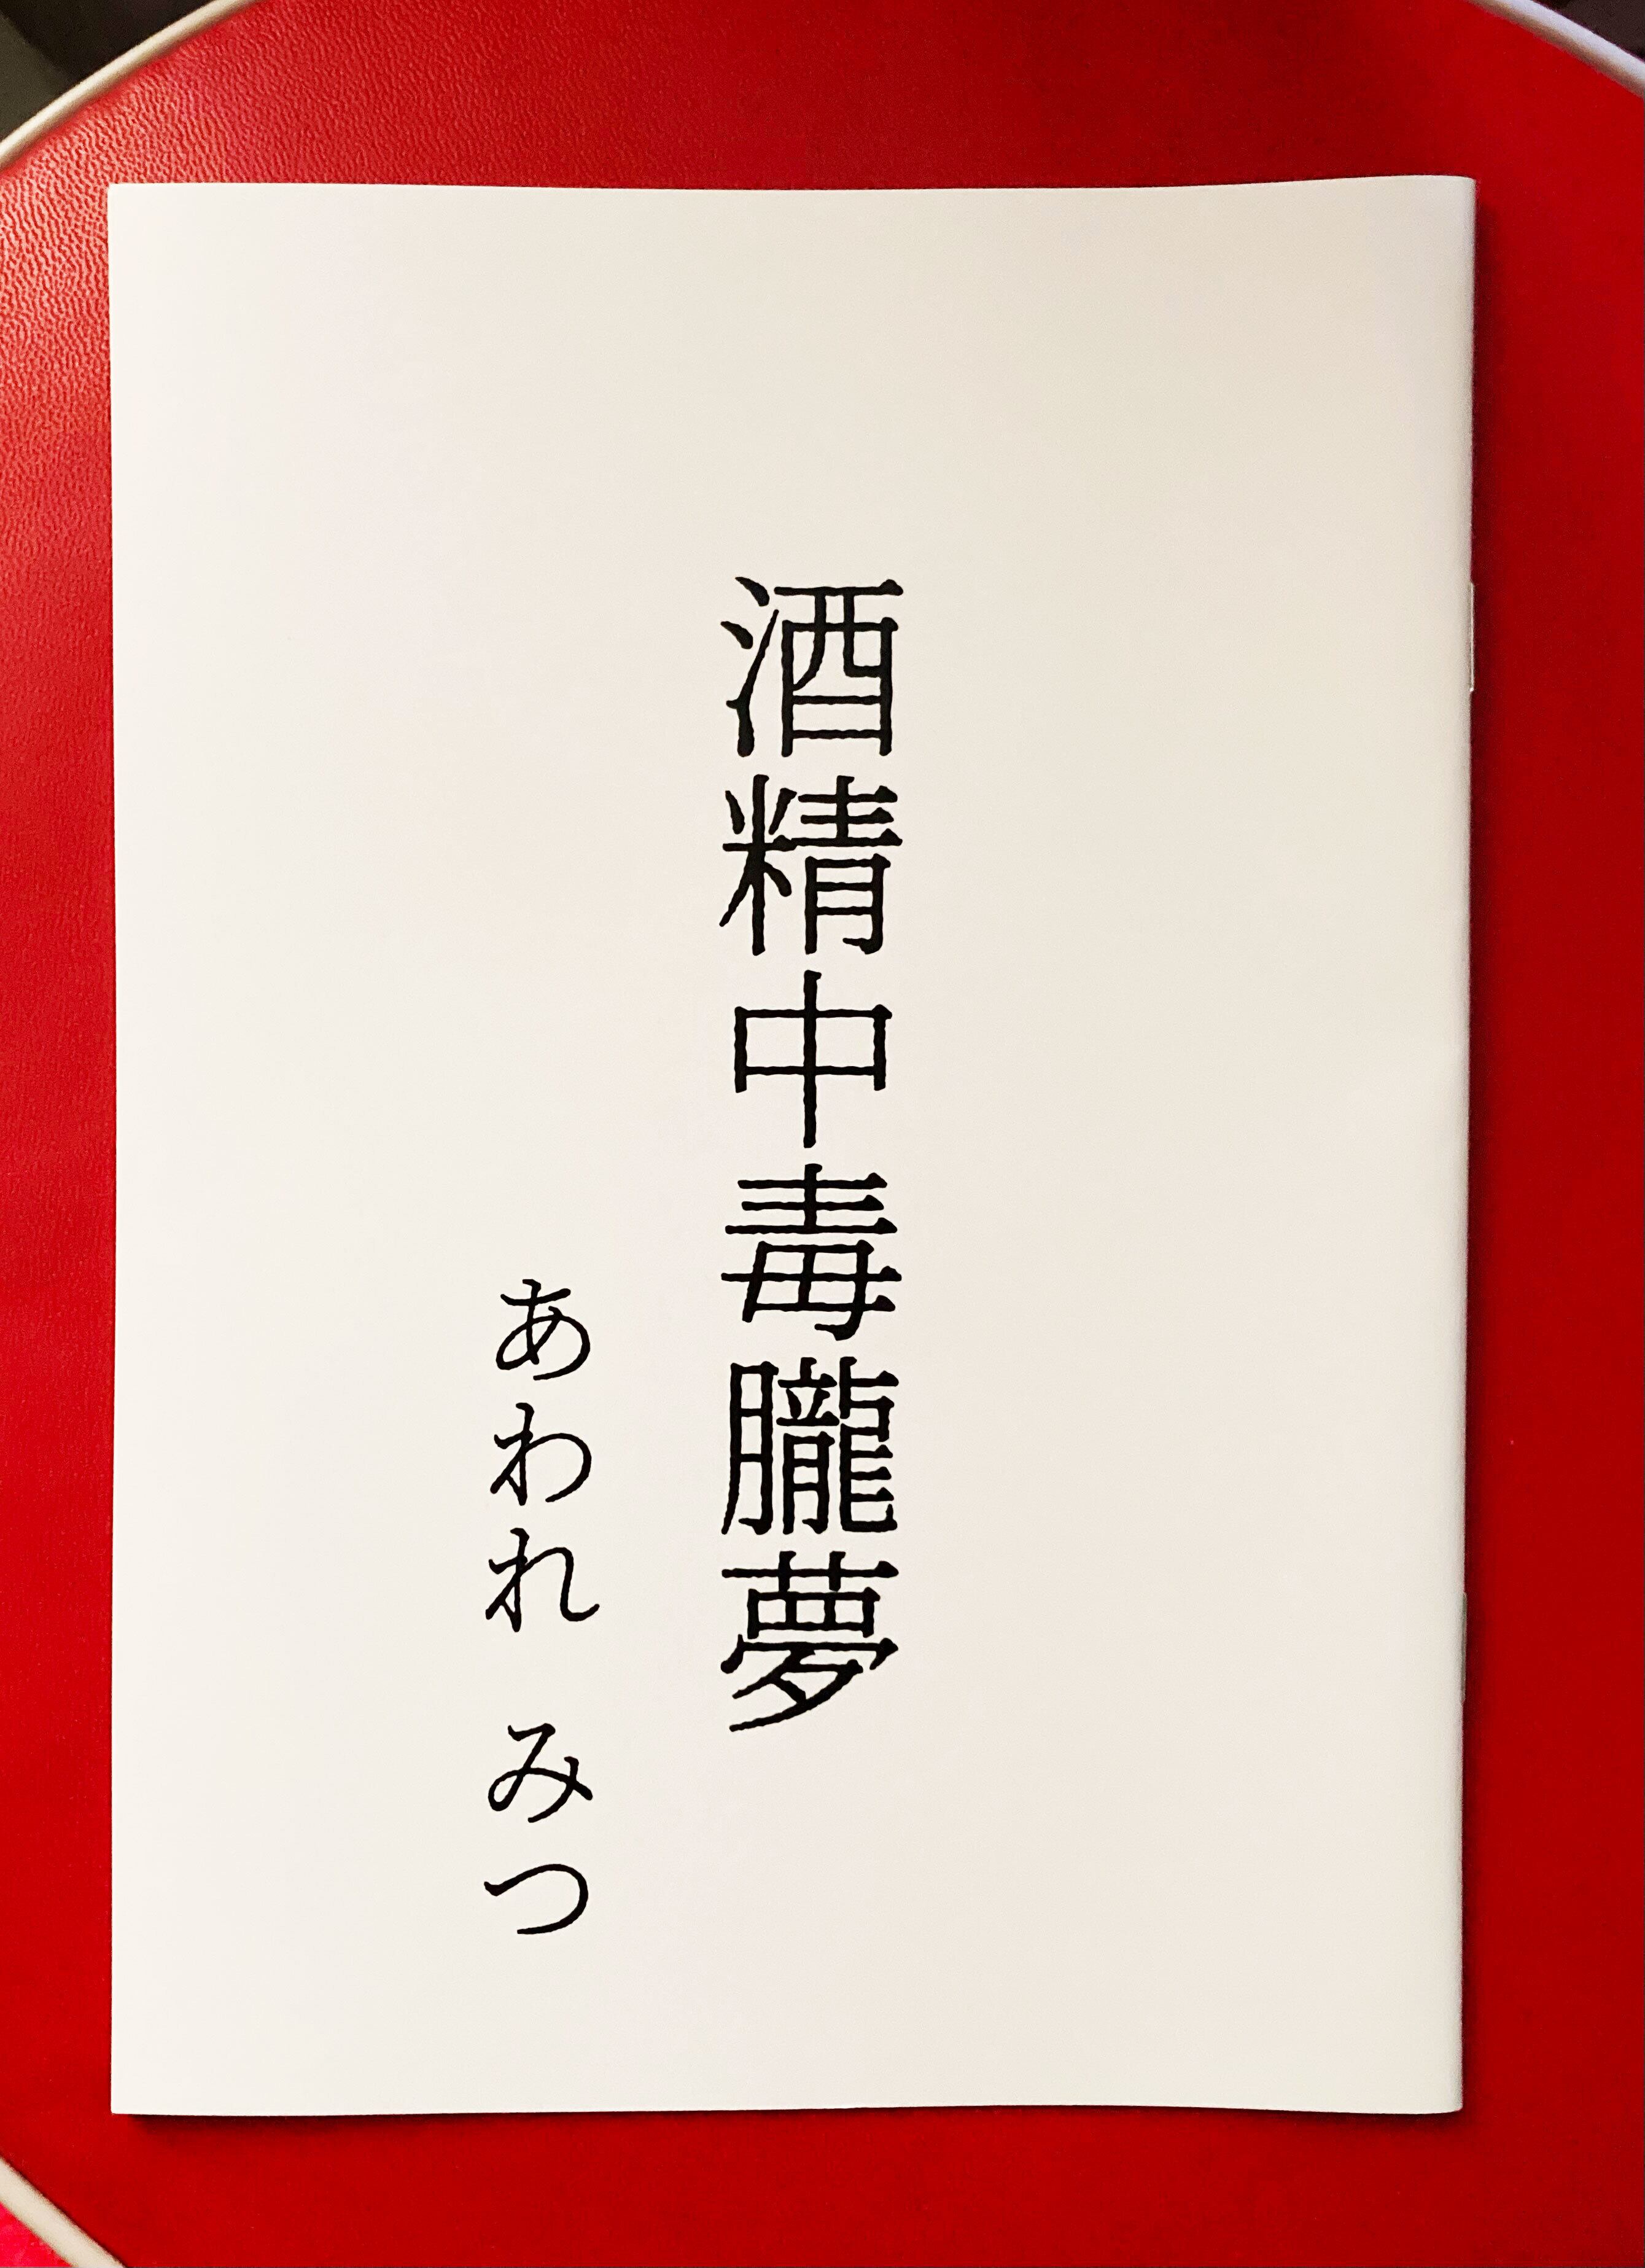 酒精中毒朧夢
あわれ みつ